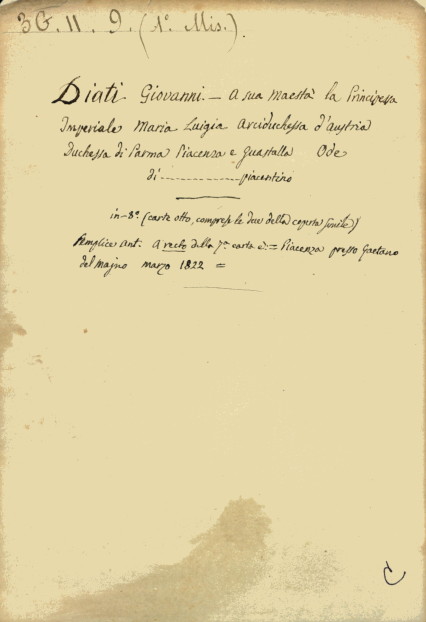 3G. 11. 9. (1º. Mis.)
Diati Giovanni. — A sua maestà la Principessa
Imperiale Maria Luigia Arciduchessa d'Austria
Duchessa di Parma Piacenza e Guastalla Ode
di .................. piacentino
in-8º. (carte otto, comprese le due della coperta simile)
Semplice ant: A recto della 7ª carta è: = Piacenza presso Gaetano
del Majno marzo 1822 =
C